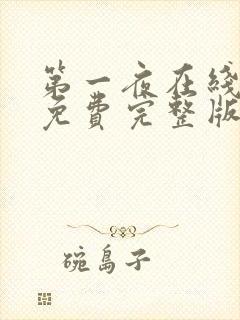 第一夜在线
免費完整版
碗島子